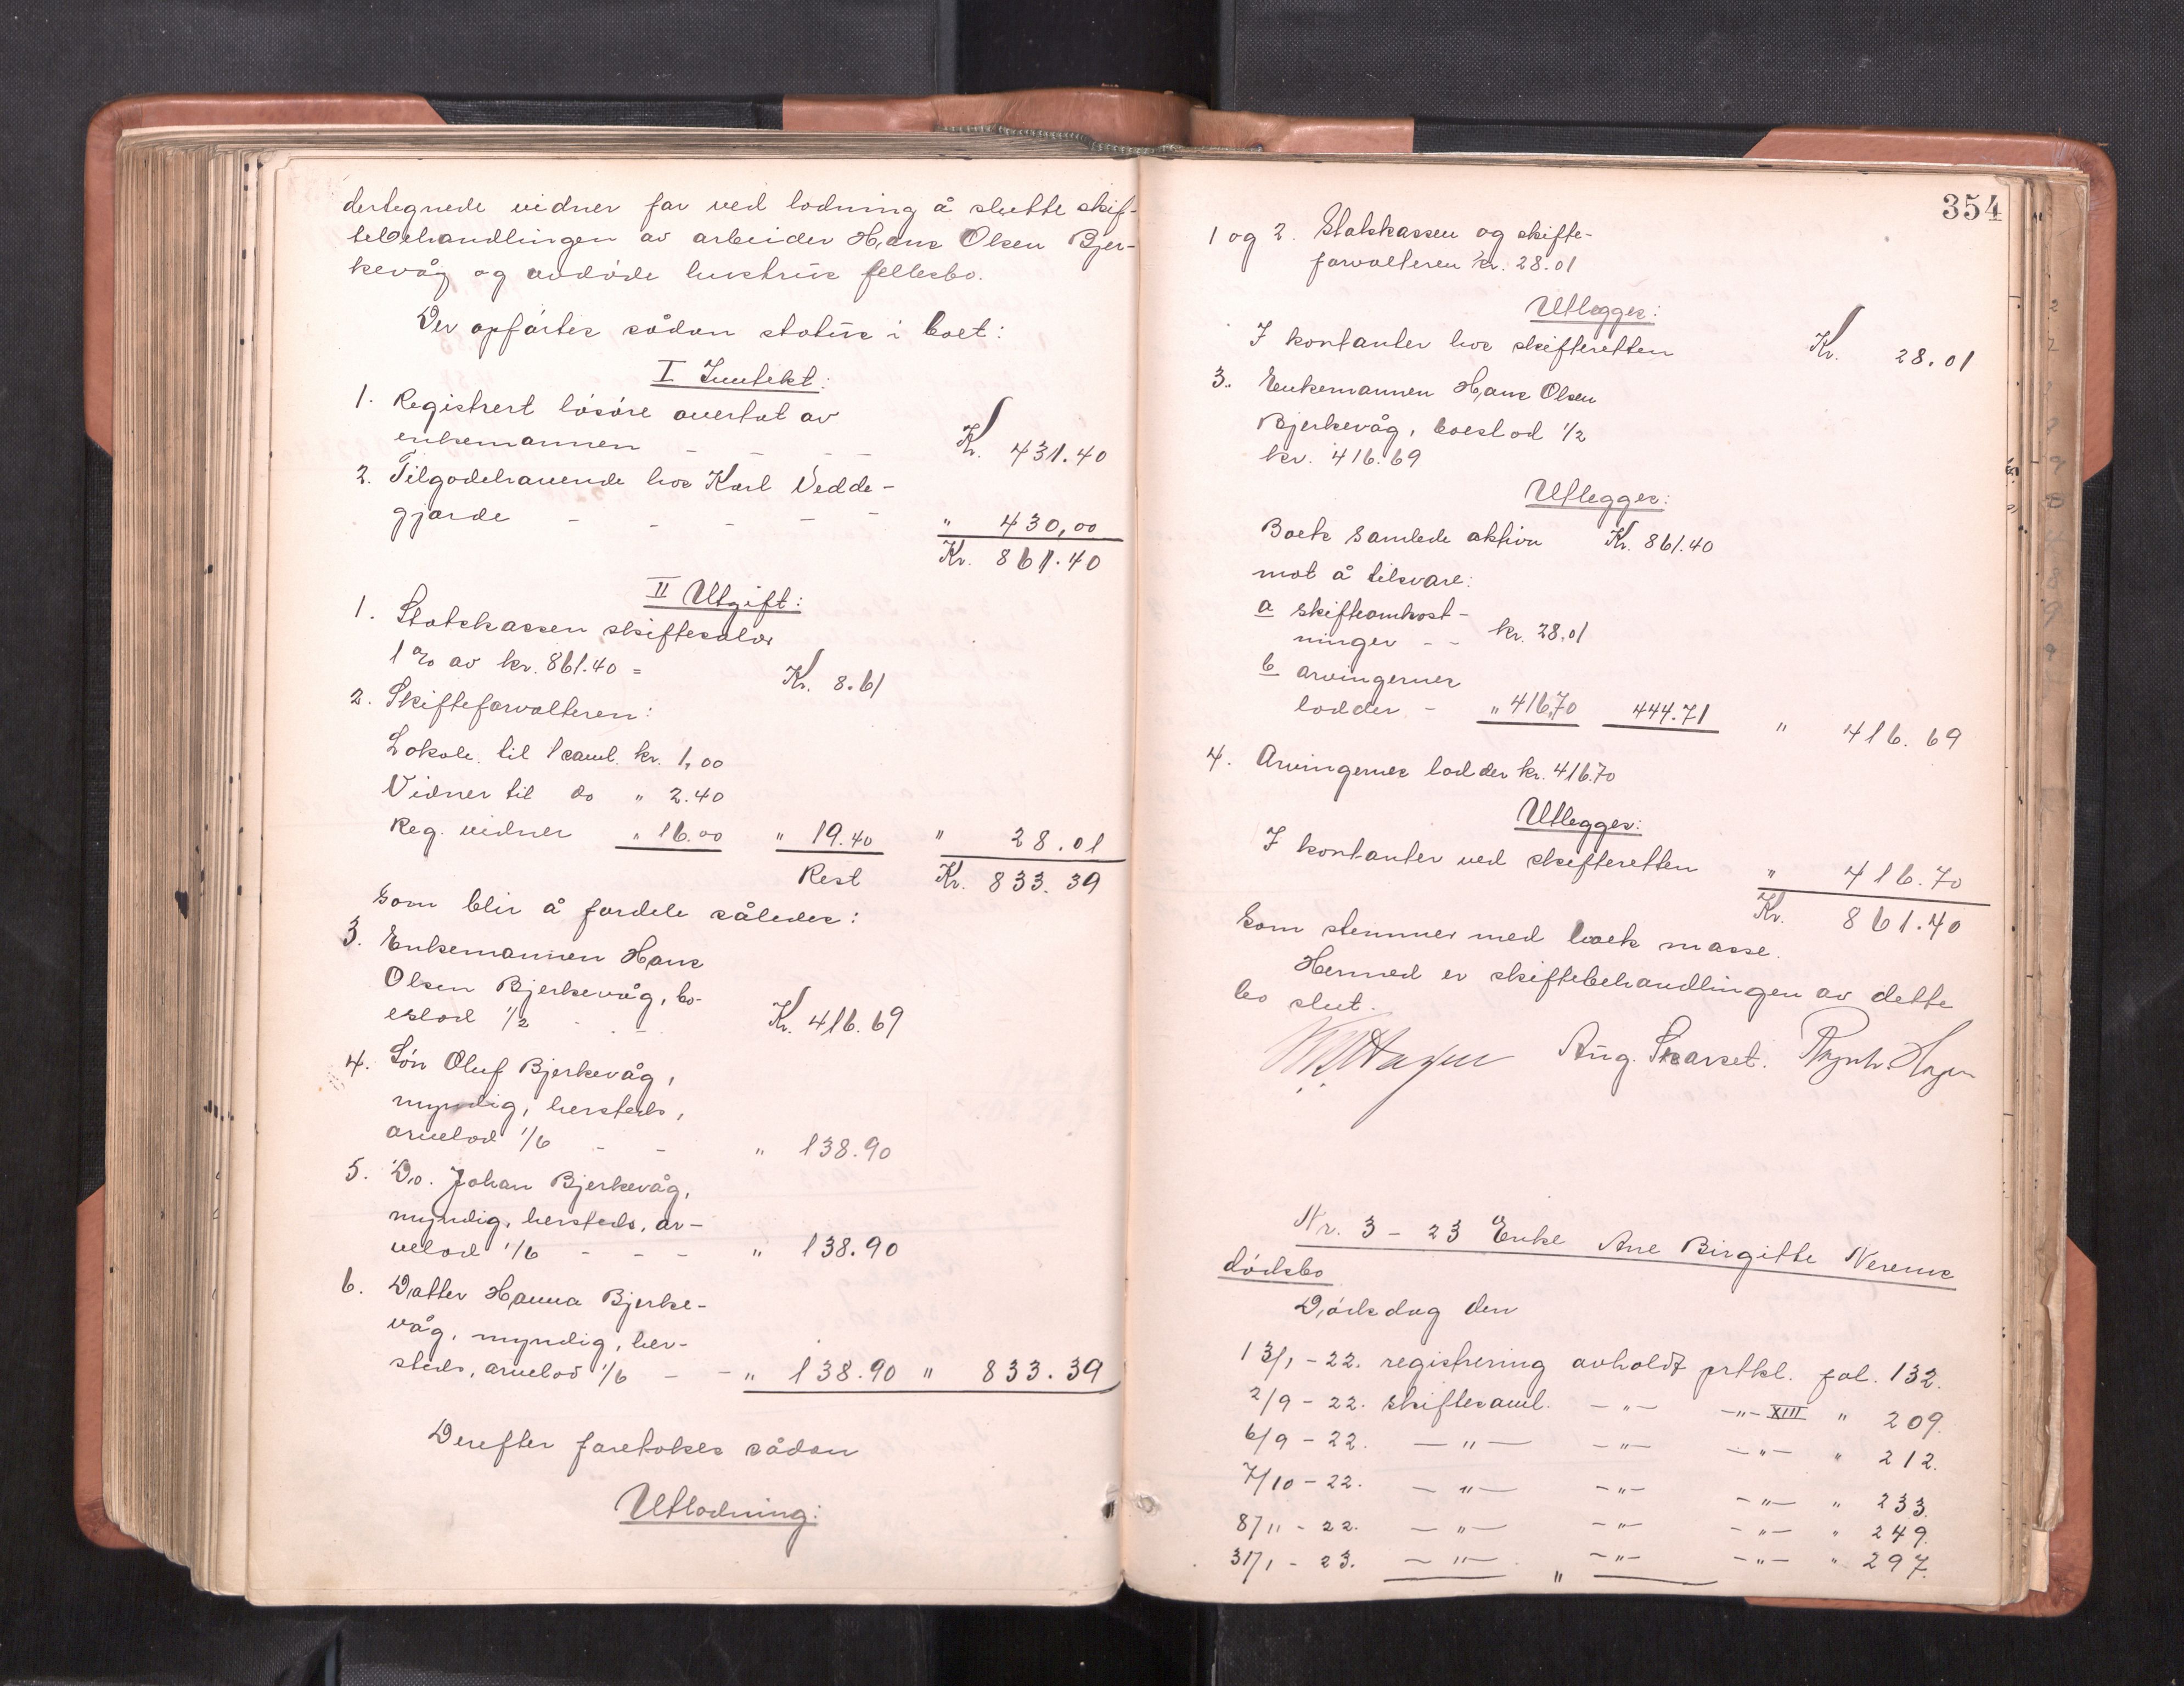 dertegnede vidner for ved lodning å slutte skif-
tebehandlingen av arbeider Hans Olsen Bjer-
kevåg og avdøde hustrus fellesbo.
Der opførtes sådan status i boet:
I Inntekt:
1. Registrert løsøre overtat av
enkemannen - - - Kr. 431.40
2. Tilgodehavende hos Karl Vedde-
gjerde - - - - - " 430,00
Kr. 861.40
II Utgift:
1. Statskassen skiftesalær
1 % av kr. 861.40 = Kr. 8.61
2. Skifteforvalteren:
Lokale til 1 saml. kr. 1,00
Vidner til do " 2.40
Reg. vidner " 16.00 " 19.40 " 28.01
Rest Kr. 833.39
Som blir å fordele således:
3. Enkemannen Hans
Olsen Bjerkevåg, bo-
eslod 1/2 - - Kr. 416.69
4. Søn Oluf Bjerkevåg,
myndig, hersteds,
arvelod 1/6 - - " 138.90
5. Do. Johan Bjerkevåg,
myndig, hersteds, ar-
velod 1/6 - - - " 138.90
6. Datter Hanna Bjerke-
våg, myndig, her-
steds, arvelod 1/6 - - " 138.90 " 833.39
Derefter foretokes sådan
Utlodning:
354
1 og 2. Statskassen og skifte-
forvalteren kr. 28.01
Utlegges:
I kontanter hos skifteretten Kr. 28.01
3. Enkemannen Hans Olsen
Bjerkevåg, boeslod 1/2
kr. 416.69
Utlegges:
Boets samlede aktiva Kr. 861.40
mot å tilsvare:
a skifteomkost-
ninger - - kr. 28.01
b arvingernes
lodder - " 416,70 444.71 " 416.69
4. Arvingernes lodder kr. 416.70
Utlegges:
I kontanter ved skifteretten " 416.70
Kr. 861.40
som stemmer med boets masse.
Hermed er skiftebehandlingen av dette
bo slut.
Hagen Aug. Skarset. Hagen
Nr. 3 - 23 Enke Ane Birgitte Nerems
dødsbo
Dødsdag den
13/1 - 22. registrering avholdt prtkl. fol. 132.
2/9 - 22. skiftesaml. - " - - " - XIII " 209.
6/9 - 22. - " - - " - - " - " 212.
7/10 - 22. - " - - " - - " - " 233.
8/11 - 22. - " - - " - - " - " 249.
31/1 - 23. - " - - " - - " - " 297.
"